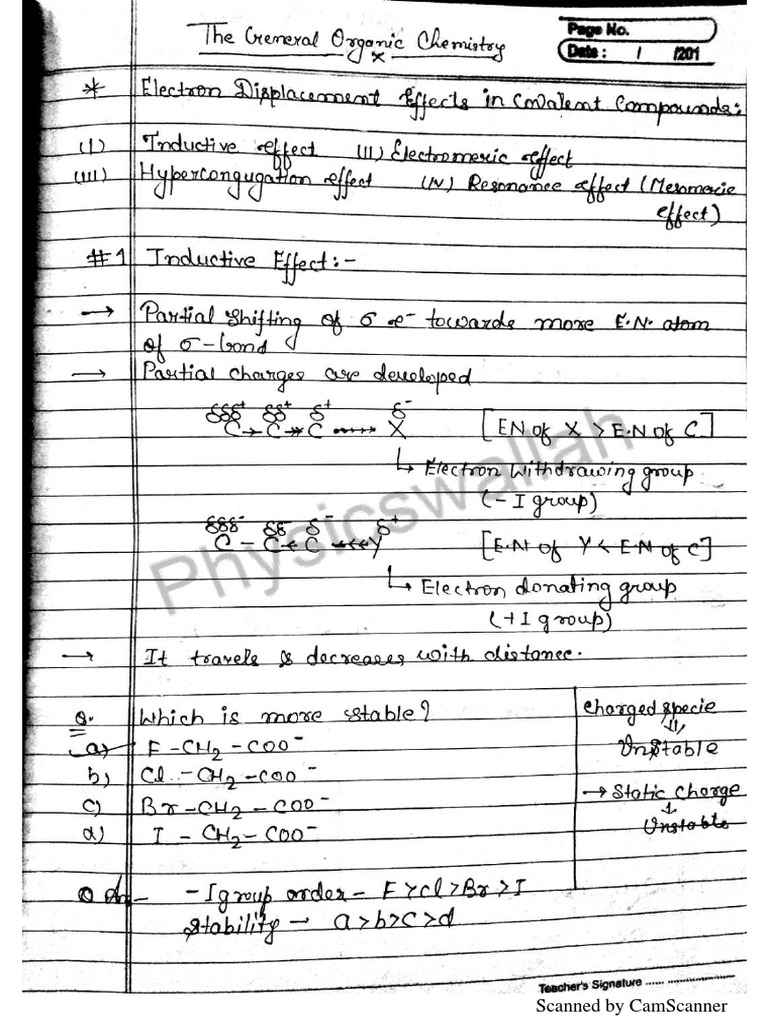 The General Organic Chemistry
Page No.
Date : / /201
* Electron Displacement Effects in Covalent Compounds:
(I) Inductive effect (II) Electromeric effect
(III) Hyperconjugation effect (IV) Resonance effect (Mesomeric
effect)
#1 Inductive Effect:-
→ Partial shifting of σ e⁻ towards more E.N. atom
of σ-bond
→ Partial charges are developed
δδδ⁺ δδ⁺ δ⁺ δ⁻
C→C→»C →→→ X [EN of X > E.N of C]
↳ Electron withdrawing group
(-I group)
δδδ⁻ δδ⁻ δ⁻ δ⁺
C – C←C ←←←Y [E.N of Y < E.N of C]
↳ Electron donating group
(+I group)
→ It travels & decreases with distance.
Q. Which is more stable?
a) F-CH₂-COO⁻
b) Cl-CH₂-COO⁻
c) Br-CH₂-COO⁻
d) I-CH₂-COO⁻
Charged specie
⇓
Unstable
→ Static charge
↓
Unstable
-I group order – F>Cl>Br>I
Stability → a>b>c>d
Physicswallah
Teacher's Signature ..................
Scanned by CamScanner